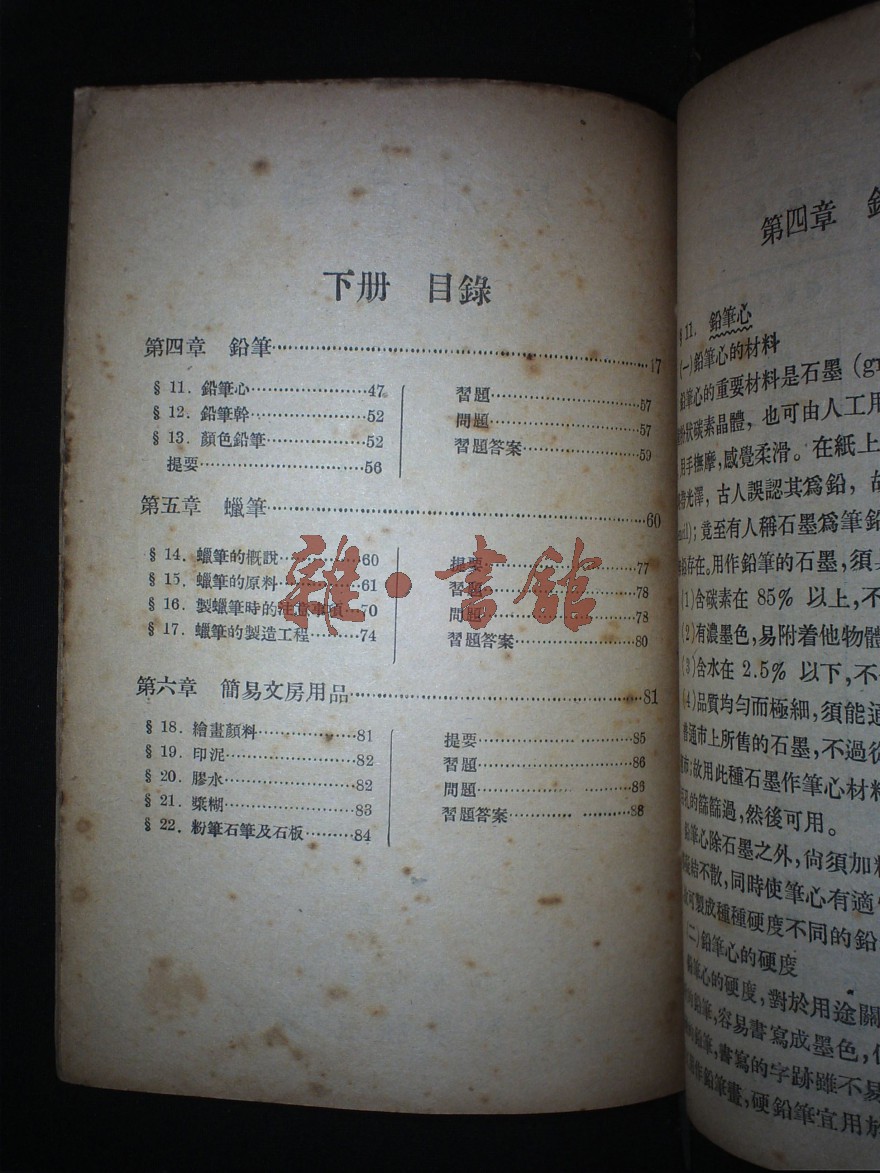 下册 目錄
第四章 鉛筆 47
§ 11. 鉛筆心 47
§ 12. 鉛筆幹 52
§ 13. 顏色鉛筆 52
提要 56
習題 57
問題 57
習題答案 59
第五章 蠟筆 60
§ 14. 蠟筆的概說 60
§ 15. 蠟筆的原料 61
§ 16. 製蠟筆時的注意事項 70
§ 17. 蠟筆的製造工程 74
提要 77
習題 78
問題 78
習題答案 80
第六章 簡易文房用品 81
§ 18. 繪畫顏料 81
§ 19. 印泥 82
§ 20. 膠水 82
§ 21. 漿糊 83
§ 22. 粉筆石筆及石板 84
提要 85
習題 86
問題 86
習題答案 88
雜·書館
第四章
§ 11. 鉛筆心
(一)鉛筆心的材料
鉛筆心的重要材料是石墨
粉狀碳素晶體，也可由人工用
用手撫摩，感覺柔滑。在紙上
光澤，古人誤認其爲鉛，故
竟至有人稱石墨爲筆鉛
存在。用作鉛筆的石墨，須
(1)含碳素在 85% 以上，不
(2)有濃墨色，易附着他物體
(3)含水在 2.5% 以下，不
(4)品質均勻而極細，須能通
普通市上所售的石墨，不過從
故用此種石墨作筆心材料
孔的篩篩過，然後可用。
鉛筆心除石墨之外，尙須加粘
結不散，同時使筆心有適
可製成種種硬度不同的鉛
(二)鉛筆心的硬度
鉛筆心的硬度，對於用途關
鉛筆，容易書寫成墨色，但
鉛筆，書寫的字跡雖不易
作鉛筆畫，硬鉛筆宜用於